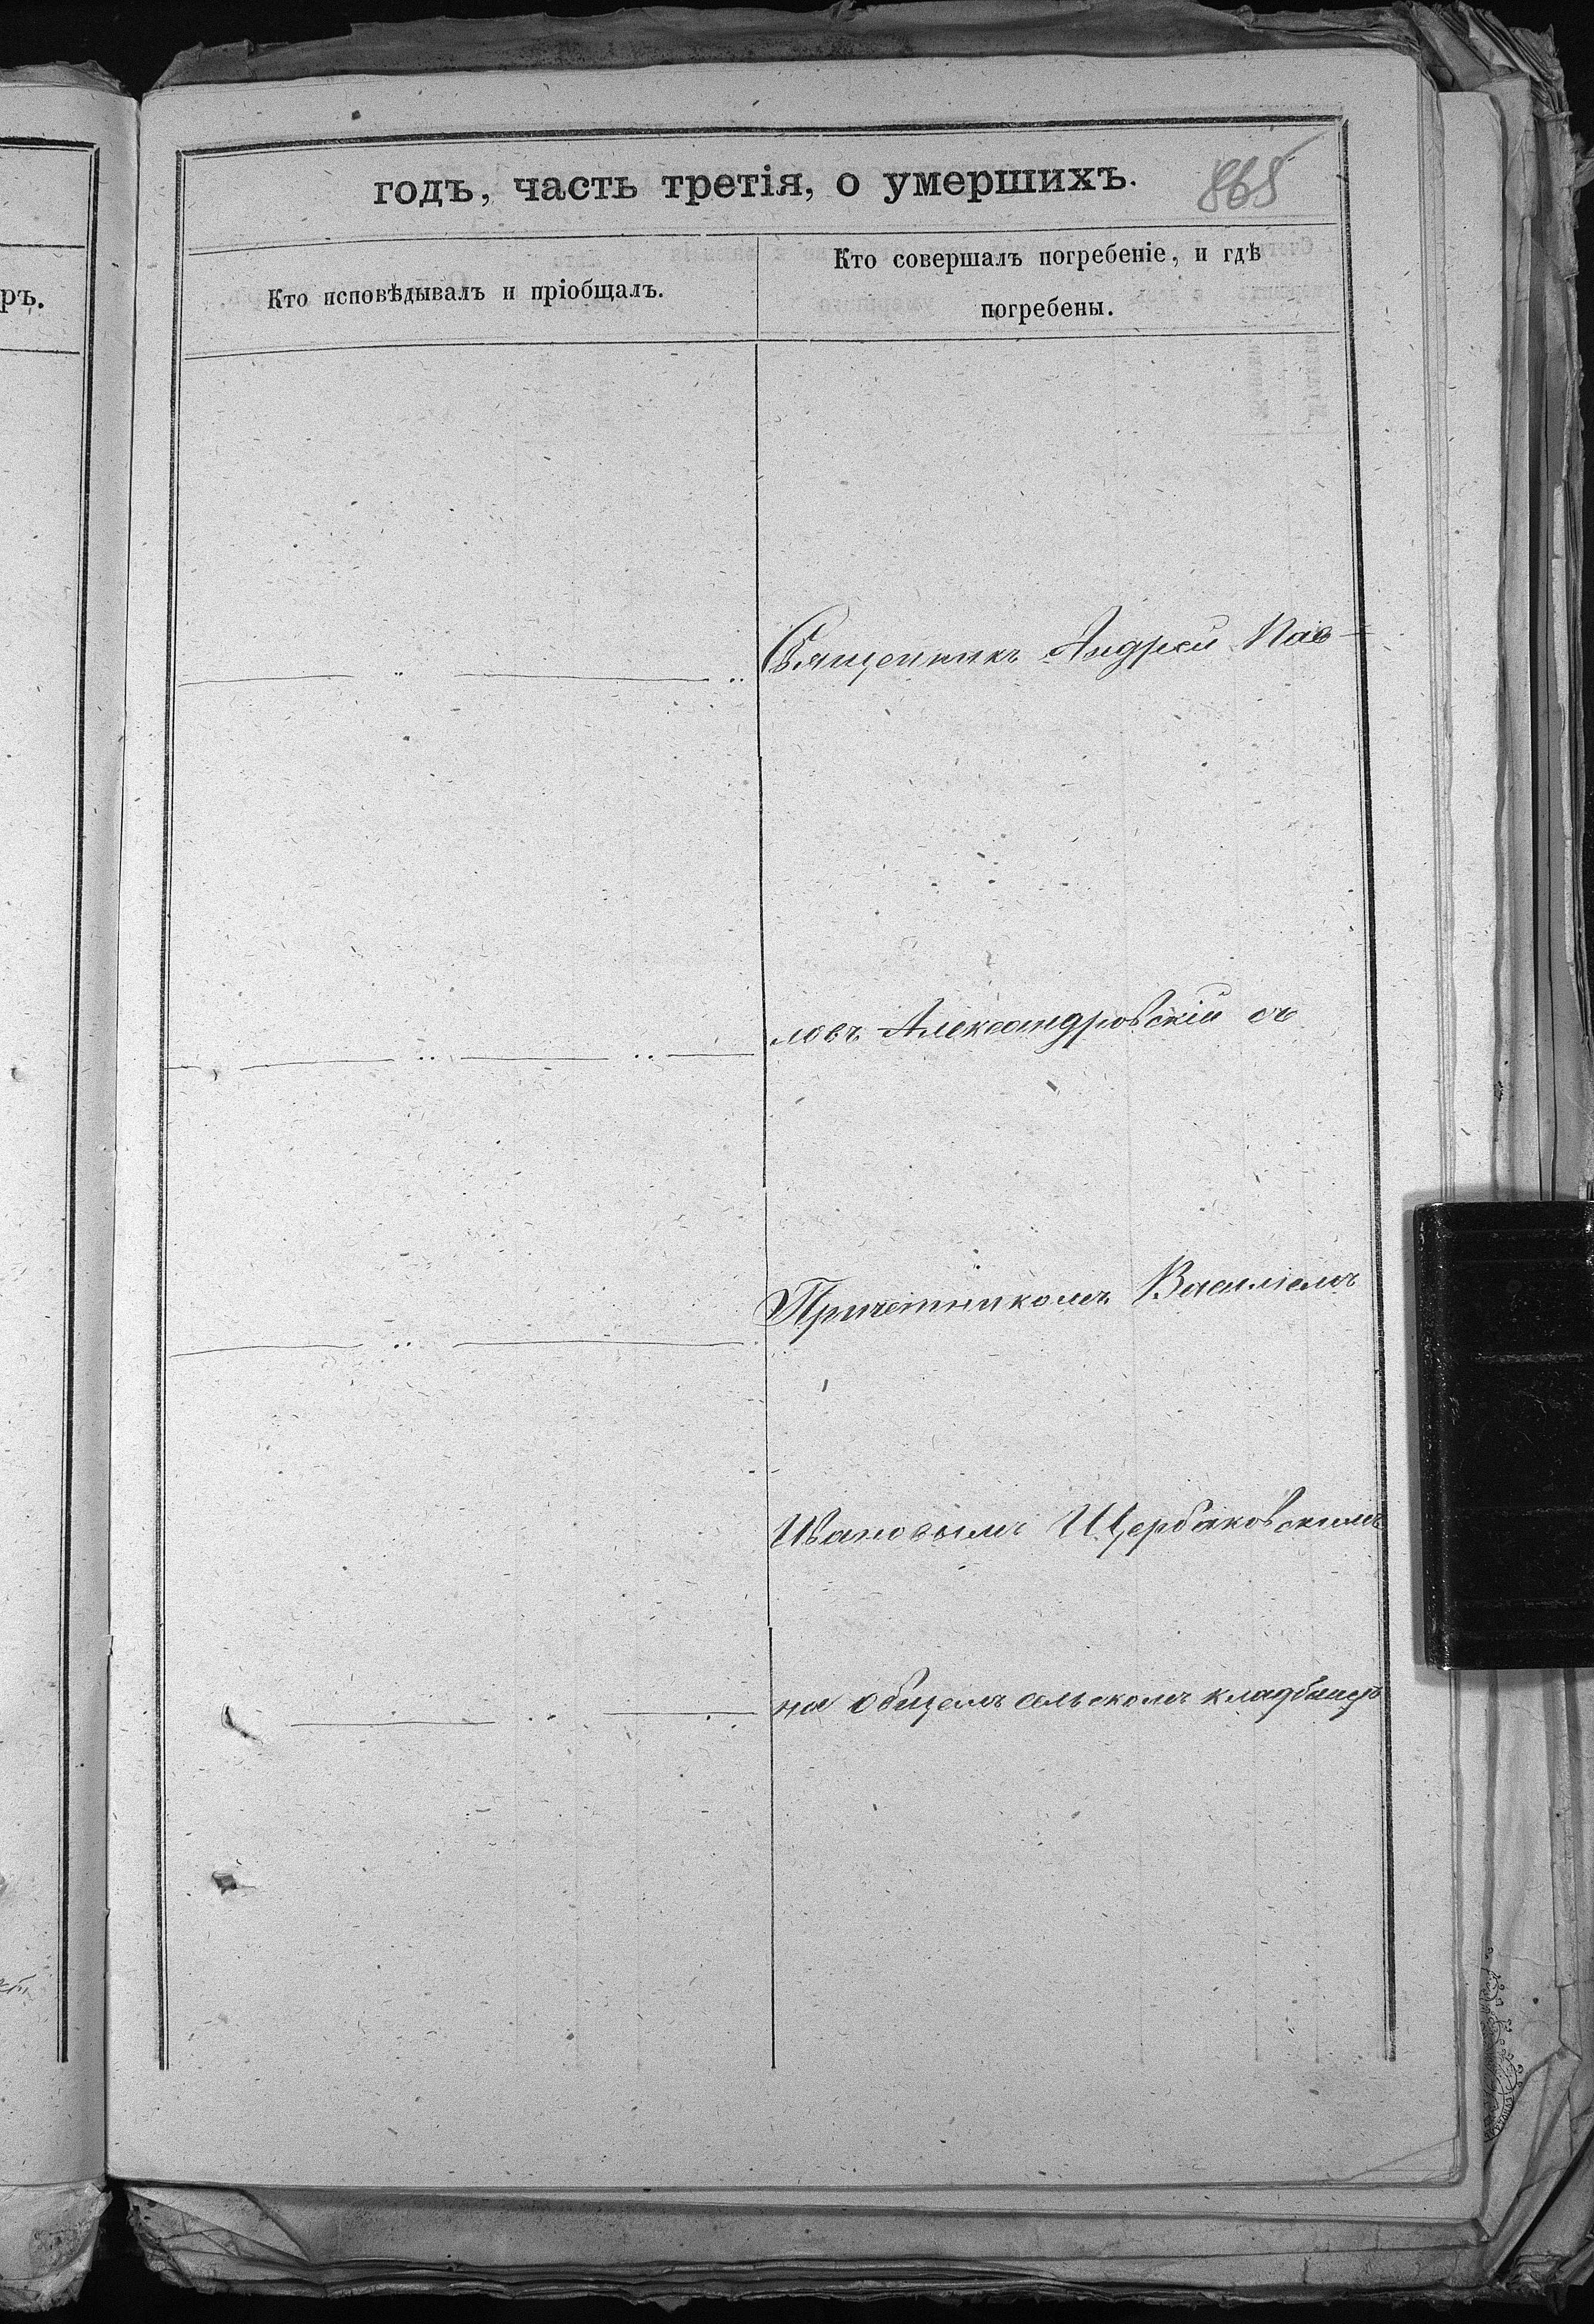 годъ, часть третія, о умершихъ.
865
ръ.
Кто исповѣдывалъ и пріобщалъ.
Кто совершалъ погребеніе, и гдѣ
погребены.
Священникъ Андрей Пав-
ловъ Александровскій съ
Причетникомъ Василіемъ
Ивановымъ Щербаковскимъ
на общемъ сельскомъ кладбищѣ